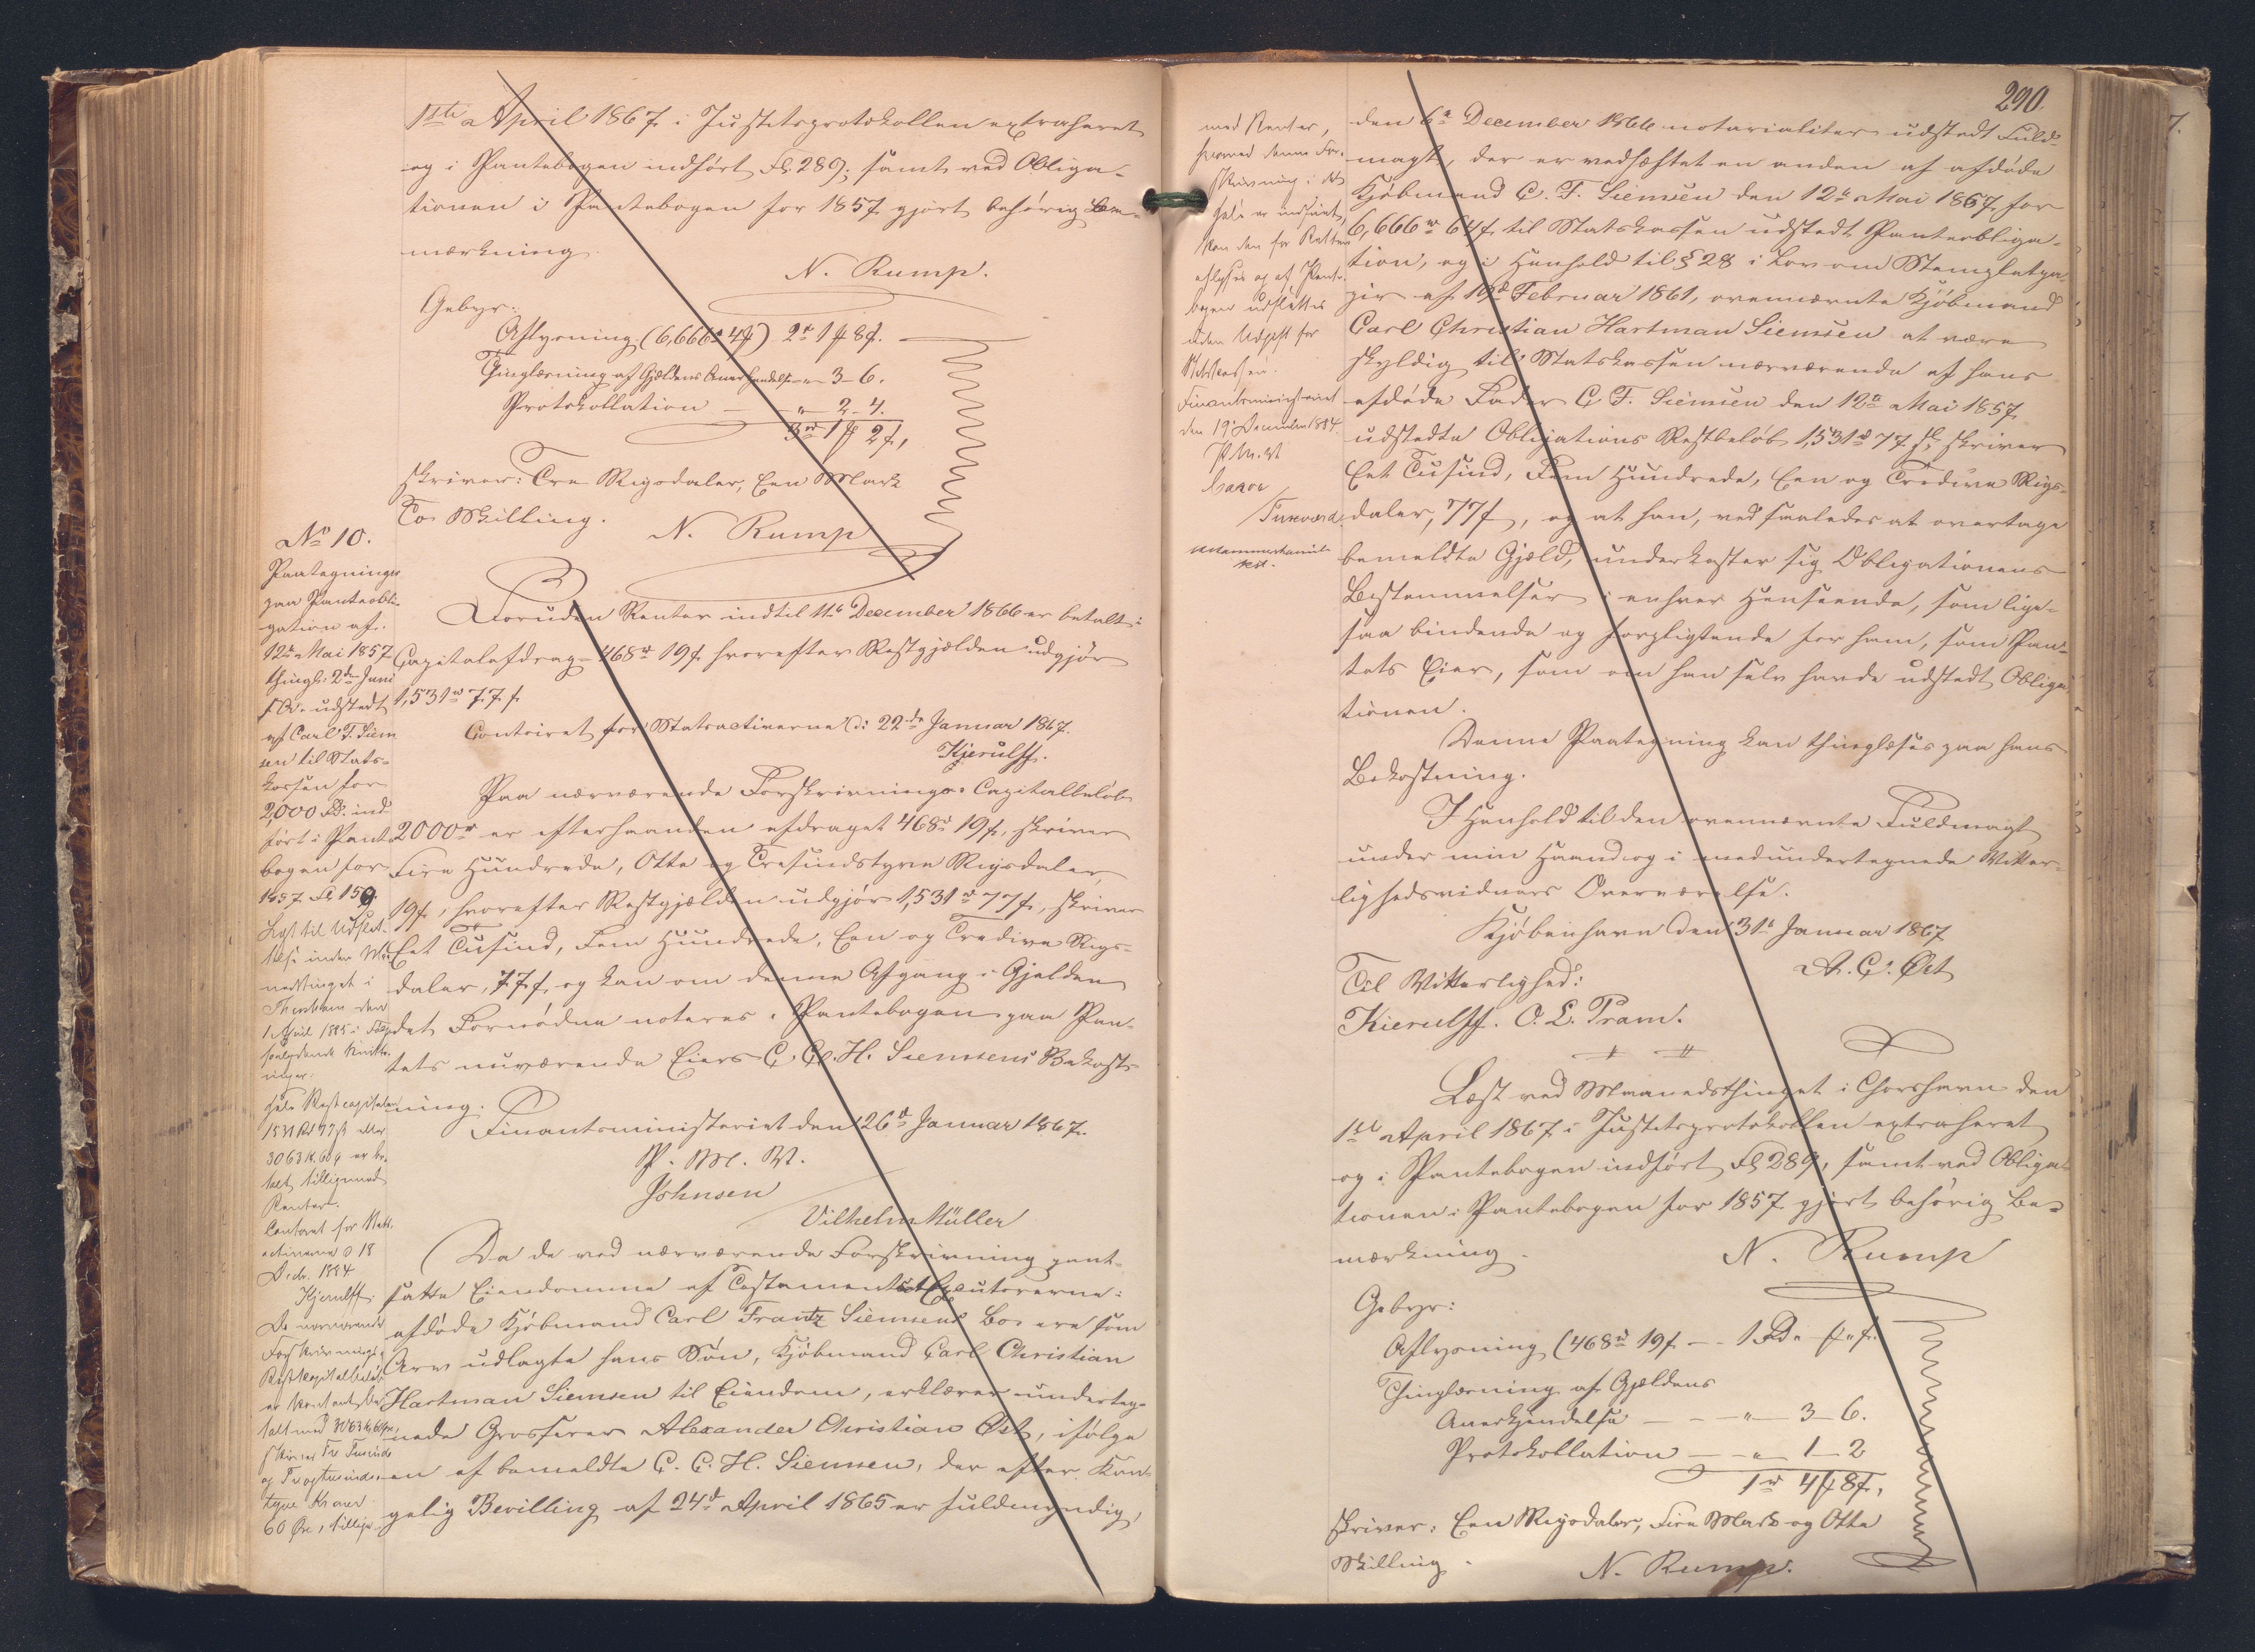 1ste April 1867 i Justitsprotokollen extraheret
og i Pantebogen indført Fol. 289; samt ved Obliga-
tionen i Pantebogen for 1857 gjort behørig Be-
mærkning.
N. Rump.
Gebyr:
Aflysning (6,666 rd 4 ß) 2 rd 1 ℔ 8 ß.
Thinglæsning af Gjældens Anerkjendelse - " - 3 - 6.
Protokollation — " — 2 - 4.
3 rd 1 ℔ 2 ß,
skriver: Tre Rigsdaler, Een Mark
To Skilling.
N. Rump
No 10.
Paategninger
paa Panteobli-
gation af
12te Mai 1857
thingl: 2den Juni
s. A. udstedt
af Carl F. Siem
sen til Stats-
kassen for
2,000 Rd. ind
ført i Pante
bogen for
1857 Fol 159.
Lyst til Udslet-
telse inden Maa
nedstinget i
Thorshavn den
1 April 1885 i Følge
saalydende Kvitte-
ringer:
Hele Restcapitalen
1531 Rd 77 ß eller
3063 Kr. 60 Ø er be-
talt tilligemed
Renter.
Contoret for Stats-
activerne d 18
Decbr. 1884.
Kjerulff.
De nærværende
Forskrivnings
Restkapitalbeløb
er Kontant be
talt med 3063 Kr 60 Øre,
skriver Tre Tusinde
og Tre og tresinds-
tyve Kroner
60 Øre, tillige
Foruden Renter indtil 11te December 1866 er betalt i
Capitalafdrag 468 rd 19 ß hvorefter Restgjælden udgjør
1,531 rd 77 ß.
Contoiret for Statsactiverne d: 22de Januar 1867.
Kjerulff.
Paa nærværende Forskrivnings Capitalbeløb
2000 rd er efterhaanden afdraget 468 rd 19 ß, skriver
Fire Hundrede, Otte og Tresindstyve Rigsdaler,
19 ß, hvorefter Restgjælden udgjør 1,531 rd 77 ß, skriver
Eet Tusind, Fem Hundrede, Een og Tredive Rigs-
daler, 77 ß og kan om denne Afgang i Gjælden
det Fornødne noteres i Pantebogen paa Pan-
tets nuværende Eiers C. C. H. Siemsens Bekost-
ning.
Finantsministeriet den 26de Januar 1867.
P. M. V.
Johnsen
Vilhelm Müller
Da de ved nærværende Forskrivning pant-
satte Eiendomme af Testamentets Executorerne i
afdøde Kjøbmand Carl Frantz Siemsens Bo ere som
Arv udlagte hans Søn, Kjøbmand Carl Christian
Hartman Siemsen til Eiendom, erklærer underteg-
nede Grosserer Alexander Christian Øst, ifølge
en af bemeldte C. C. H. Siemsen, der efter Kon-
gelig Bevilling af 24de April 1865 er fuldmyndig,
290.
med Renter,
hvormed denne For-
skrivning i det
Hele er indfriet,
Kan den for Retten
aflyses og af Pante-
bogen udslettes
uden Udgift for
Statskassen.
Finantsministeriet
den 19 December 1884.
P. M. V.
Tuxward
den 6te December 1866 notarialiter udstedt Fuld-
magt, der er vedhæftet en anden af afdøde
Kjøbmand C. F. Siemsen den 12te Mai 1857 for
6,666 rd 64 ß til Statskassen udstedt Panteobliga-
tion, og i Henhold til § 28 i Lov om Stempletpa-
pir af 19de Februar 1861, ovennævnte Kjøbmand
Carl Christian Hartman Siemsen at være
skyldig til Statskassen nærværende af hans
afdøde Fader C. F. Siemsen den 12te Mai 1857
udstedte Obligations Restbeløb 1,531 rd 77 ß, skriver
Eet Tusind, Fem Hundrede, Een og Tredive Rigs-
daler, 77 ß, og at han, ved saaledes at overtage
bemeldte Gjæld, underkaster sig Obligationens
Bestemmelser i enhver Henseende, som lige-
saa bindende og forpligtende for ham, som Pan-
tets Eier, som om han selv havde udstedt Obliga-
tionen.
Denne Paategning kan thinglæses paa hans
Bekostning.
I Henhold til den ovennævnte Fuldmagt
under min Haand og i medundertegnede Vitter-
lighedsvidners Overværelse.
Kjøbenhavn den 31te Januar 1867
A. C. Øst
Til Vitterlighed:
Kierulff. O. L. Pram.
Læst ved Maanedsthinget i Thorshavn den
1ste April 1867 i Justitsprotokollen extraheret
og i Pantebogen indført Fol 289, samt ved Obliga-
tionen i Pantebogen for 1857 gjort behørig Be-
mærkning.
N. Rump
Gebyr:
Aflysning (468 rd 19 ß — 1 Rd. " ℔ " ß.
Thinglæsning af Gjældens
Anerkjendelse — - — " — 3 - 6.
Protokollation — - " — 1 - 2
1 rd 4 ℔ 8 ß,
skriver: Een Rigsdaler, Fire Mark og Otte
Skilling.
N. Rump.